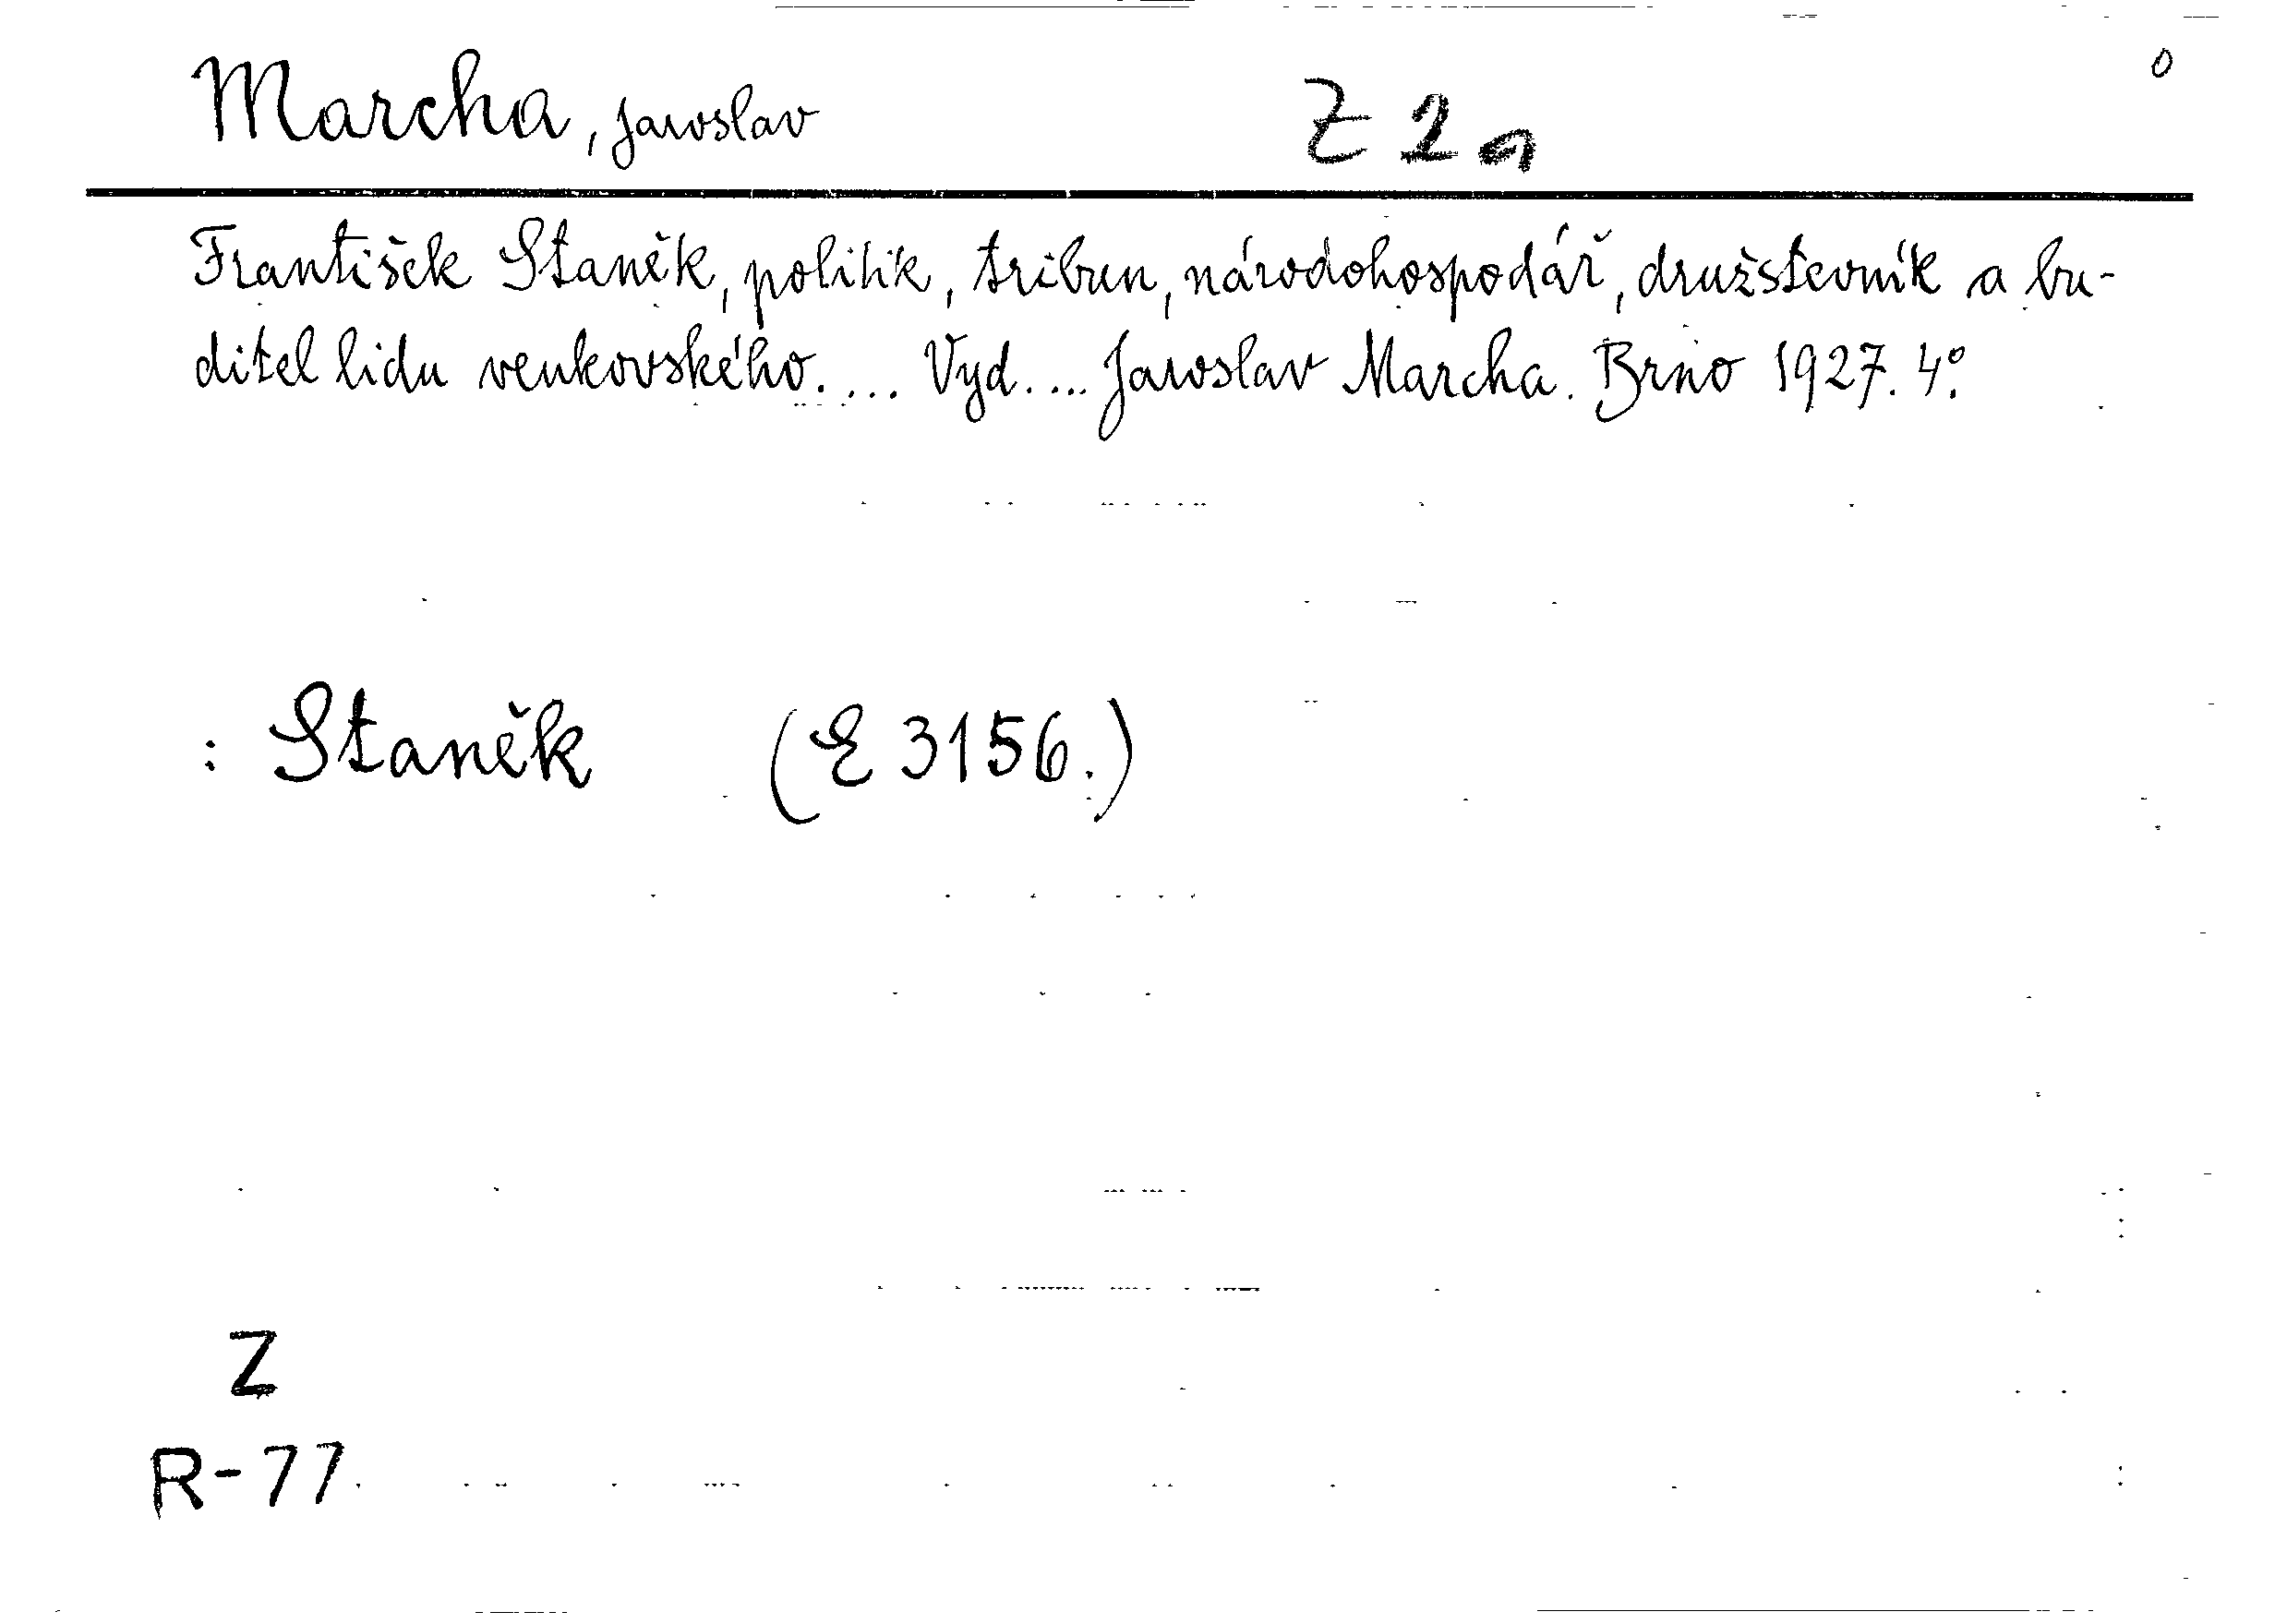 Marcha, Jaroslav Z 2a 0
František Staněk, politik, tribun, národohospodář, družstevník a bu-
ditel lidu venkovského.... Vyd.... Jaroslav Marcha. Brno 1927. 4°.
: Staněk (E 3156.)
Z
R-77